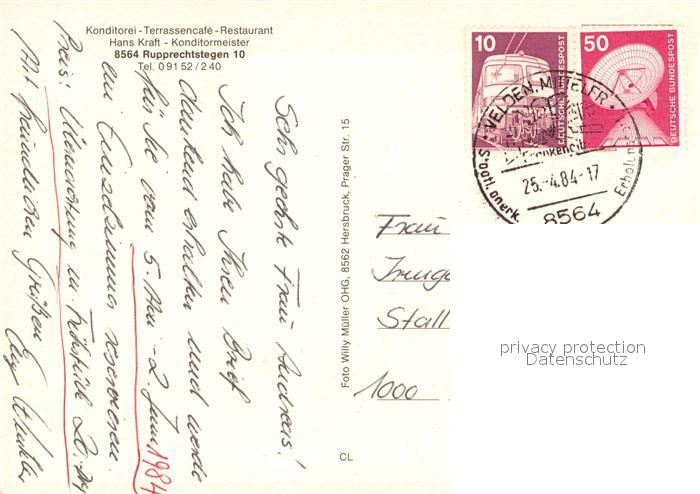 Konditorei - Terrassencafé - Restaurant
Hans Kraft - Konditormeister
8564 Rupprechtstegen 10
Tel. 0 91 52 / 2 40
Sehr geehrte Frau
Ich habe Ihren Brief
dankend erhalten und werde
für Sie vom 5. Mai - 2. Juni 1984
ein Einzelzimmer reservieren.
Preis: Übernachtung m. Frühstück 20.
Mit freundlichen Grüßen
Foto Willy Müller OHG, 8562 Hersbruck, Prager Str. 15
CL
10
DEUTSCHE BUNDESPOST
50
DEUTSCHE BUNDESPOST
VELDEN, MITTELFR.
Frankenalb
25.-4.84-17
8564
staatl. anerk.
Erholun
Frau
Irmg
Stall
1000
privacy protection
Datenschutz